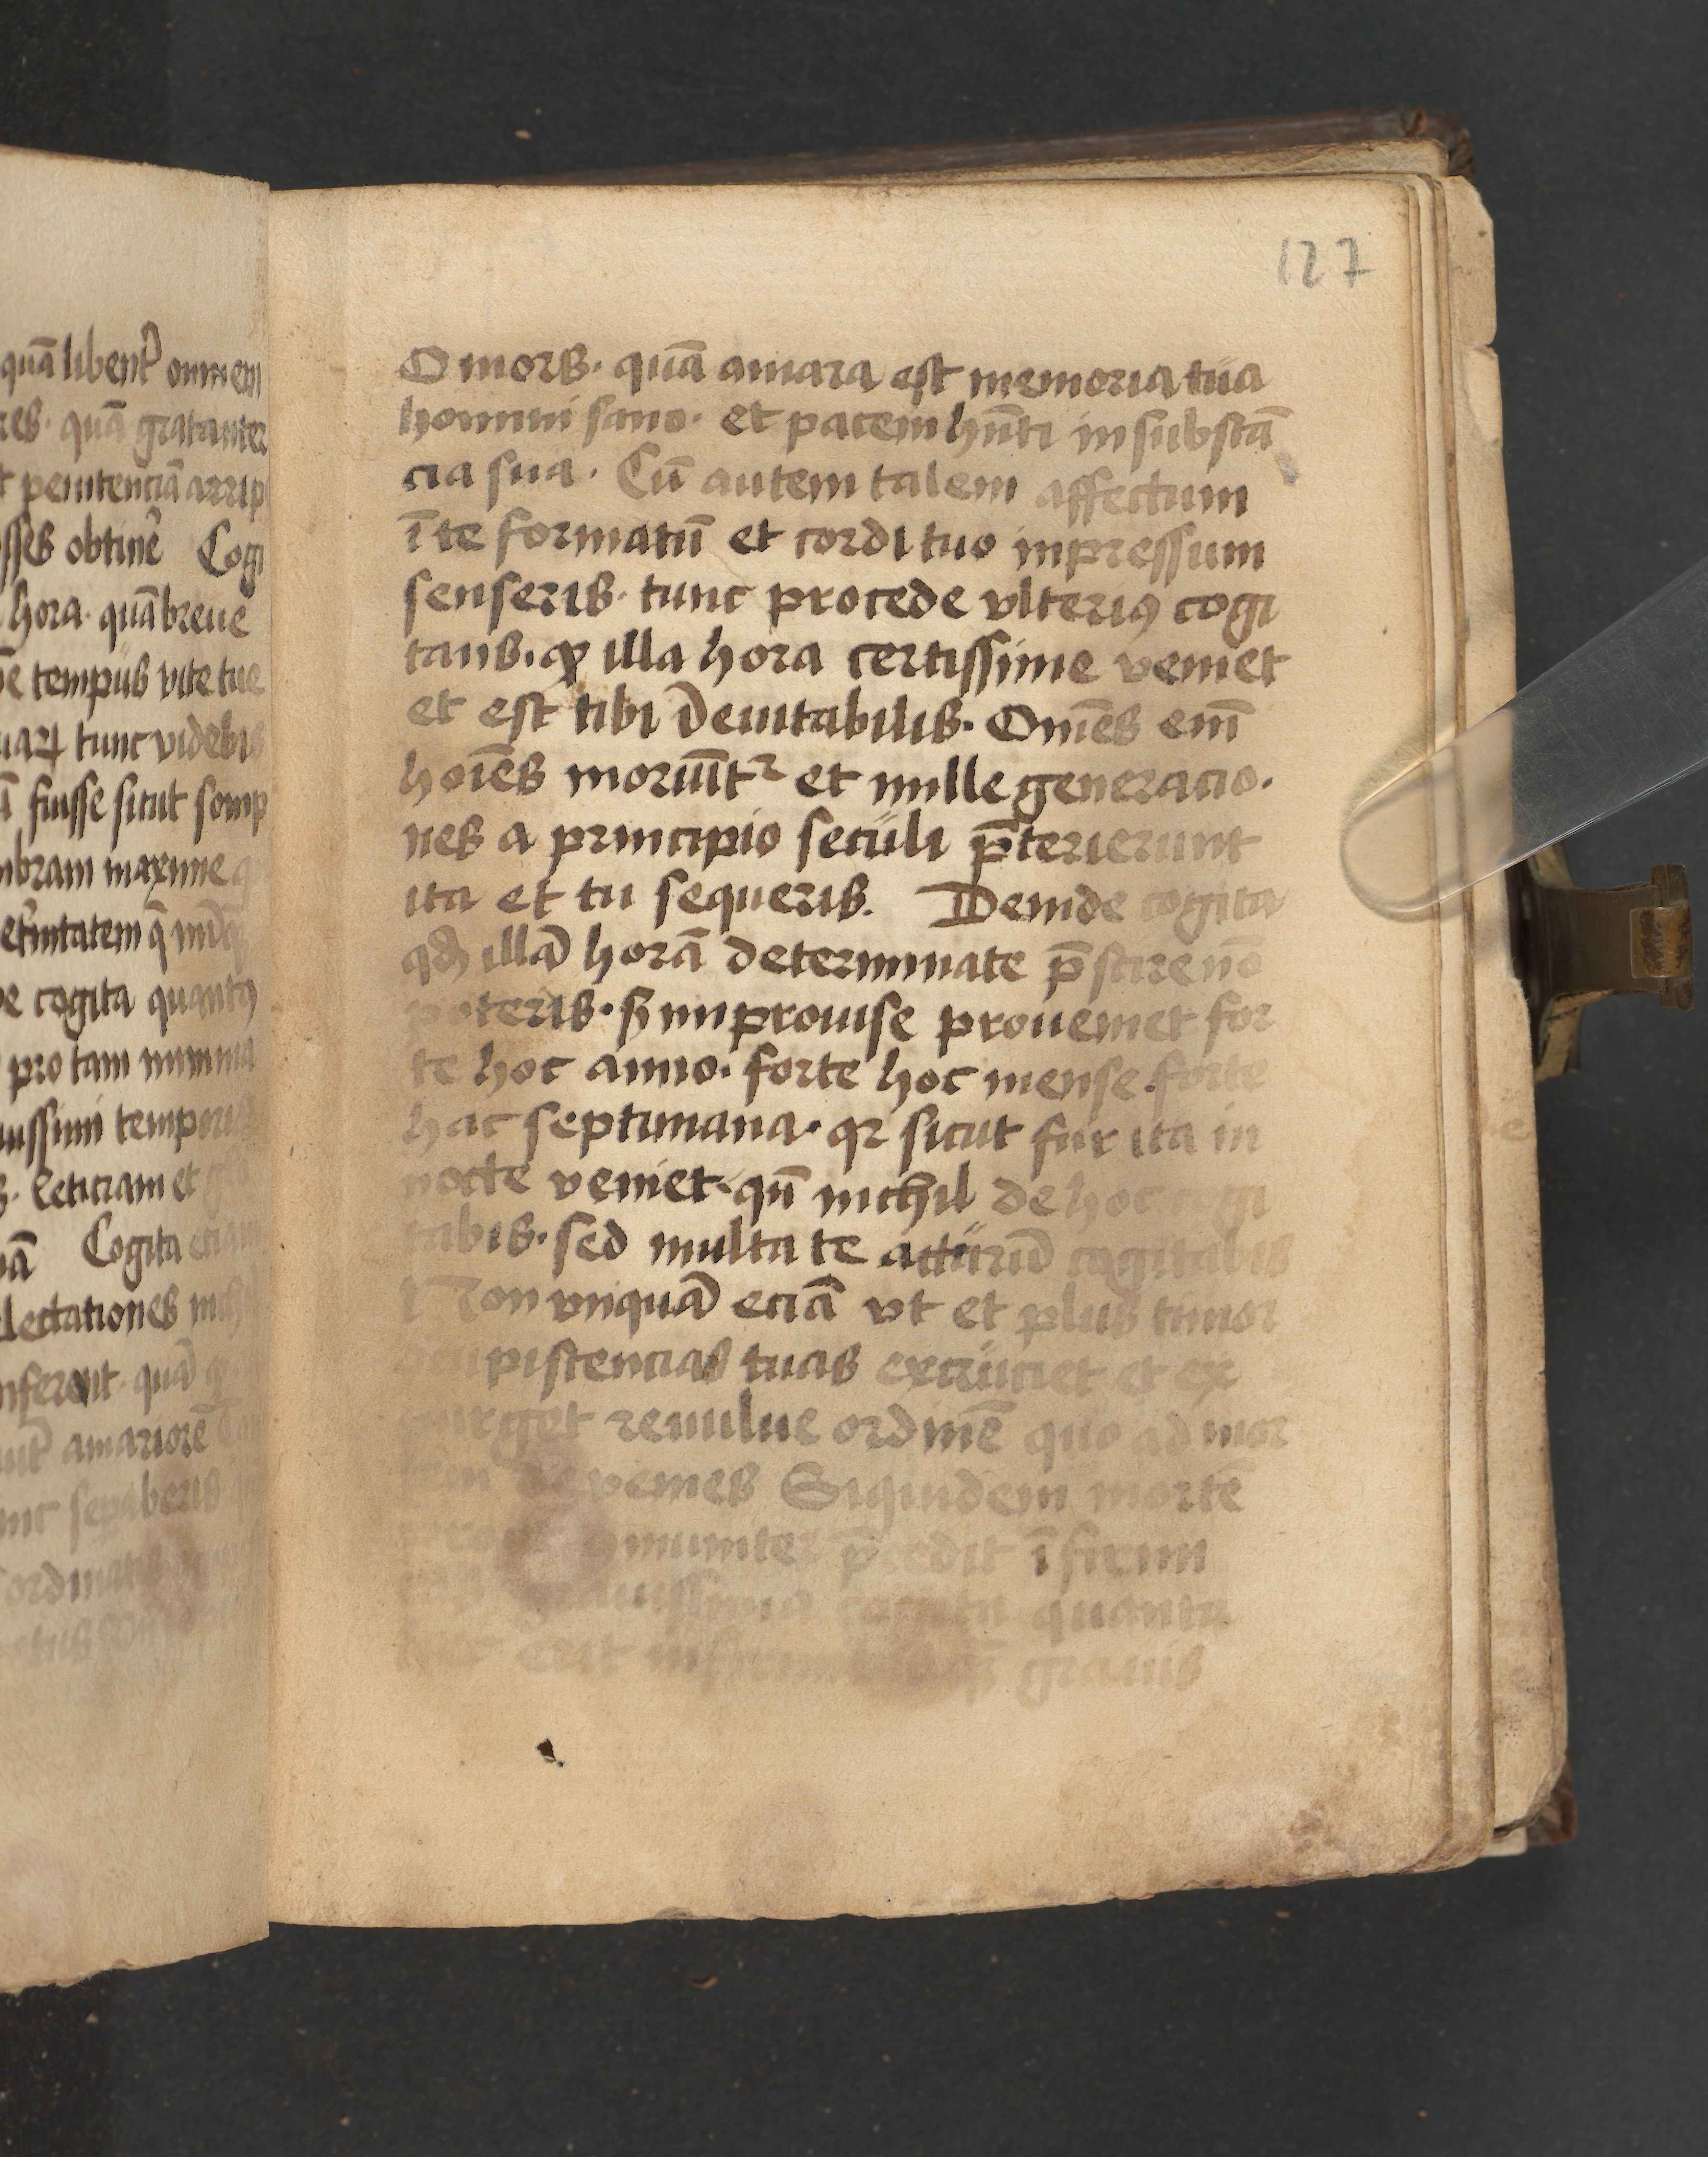 quā libent᷑ omnem
res · quā gratanter
t penitenciā arrip
sses obtine᷑ Cogi
hora · quā breue
tempus vite tue
tunc videbis
fuisse sicut somp
mbram maxime
et᷑nitatem q̄
cogita quantꝰ
pro tam minima
uissimi temporis
leticiam et
Cogita eciam
lectationes
nferent · quā
amariorē
nc sepaberis
ordinatis
127
O mors · quā amara est memoria tua
homini sano · et pacem hn̄ti in substā
cia sua · Cū autem talem affectum
ī te formatū et cordi tuo inpressum
senseris · tunc procede vlteriꝰ cogi
tans · ꝙ illa hora certissime veniet
et est tibi īeuitabilis · Om̄es enī
hoīes moriūt᷑ et mille generacio ·
nes a principio seculi p̄terierunt
ita et tu sequeris . Deinde cogita
qd̓ illā horā determinate p̄scire nō
poteris · sꝫ improuise proueniet for
te hoc anno · forte hoc mense · forte
hac septimana · qꝛ sicut fur ita in
nocte veniet · qn̄ nichil de hoc cogi
tabis · sed multa te acturū cogitabis
Non vnquā eciā vt et plus timor
piscencias tuas excruciet et ex
purget reuolue ordinē quo ad mor
tem deuenies Siquidem mortē
muniter p̄cedit īfirmi
uissima quanta
erit grauis